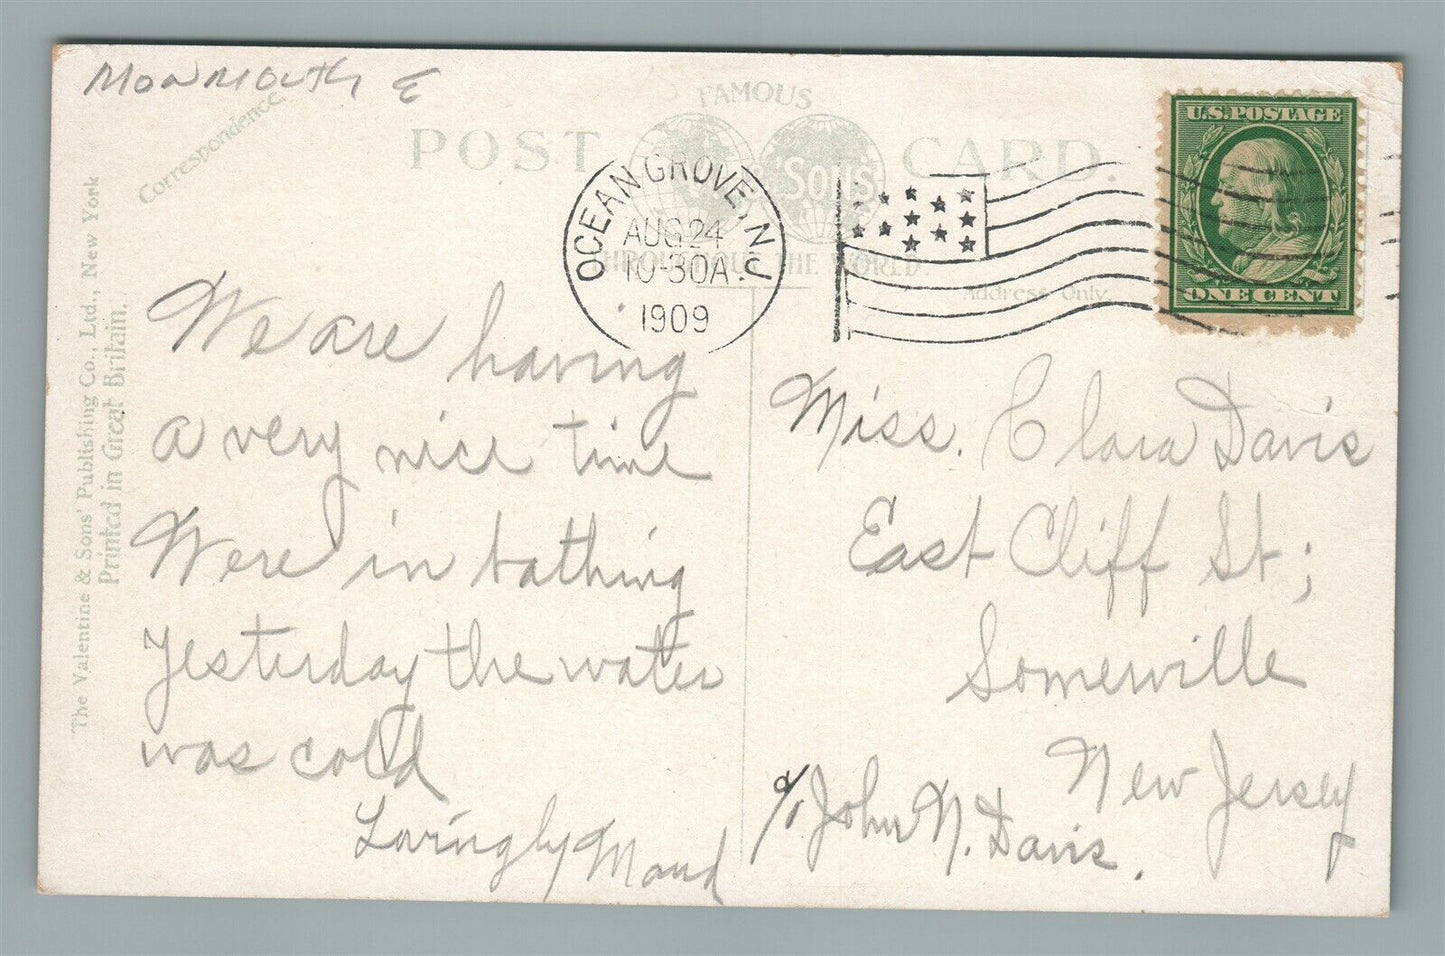 Monmouth
Correspondence
FAMOUS
POST CARD.
Sons'
THROUGHOUT THE WORLD.
Address Only.
OCEAN GROVE, N.J.
AUG 24
10-30A
1909
U.S. POSTAGE
ONE CENT
The Valentine & Sons' Publishing Co., Ltd., New York
Printed in Great Britain.
We are having
a very nice time
Were in bathing
Yesterday the water
was cold
Lovingly Maud
Miss. Clara Davis
East Cliff St;
Somerville
New Jersey
c/o John N. Davis.